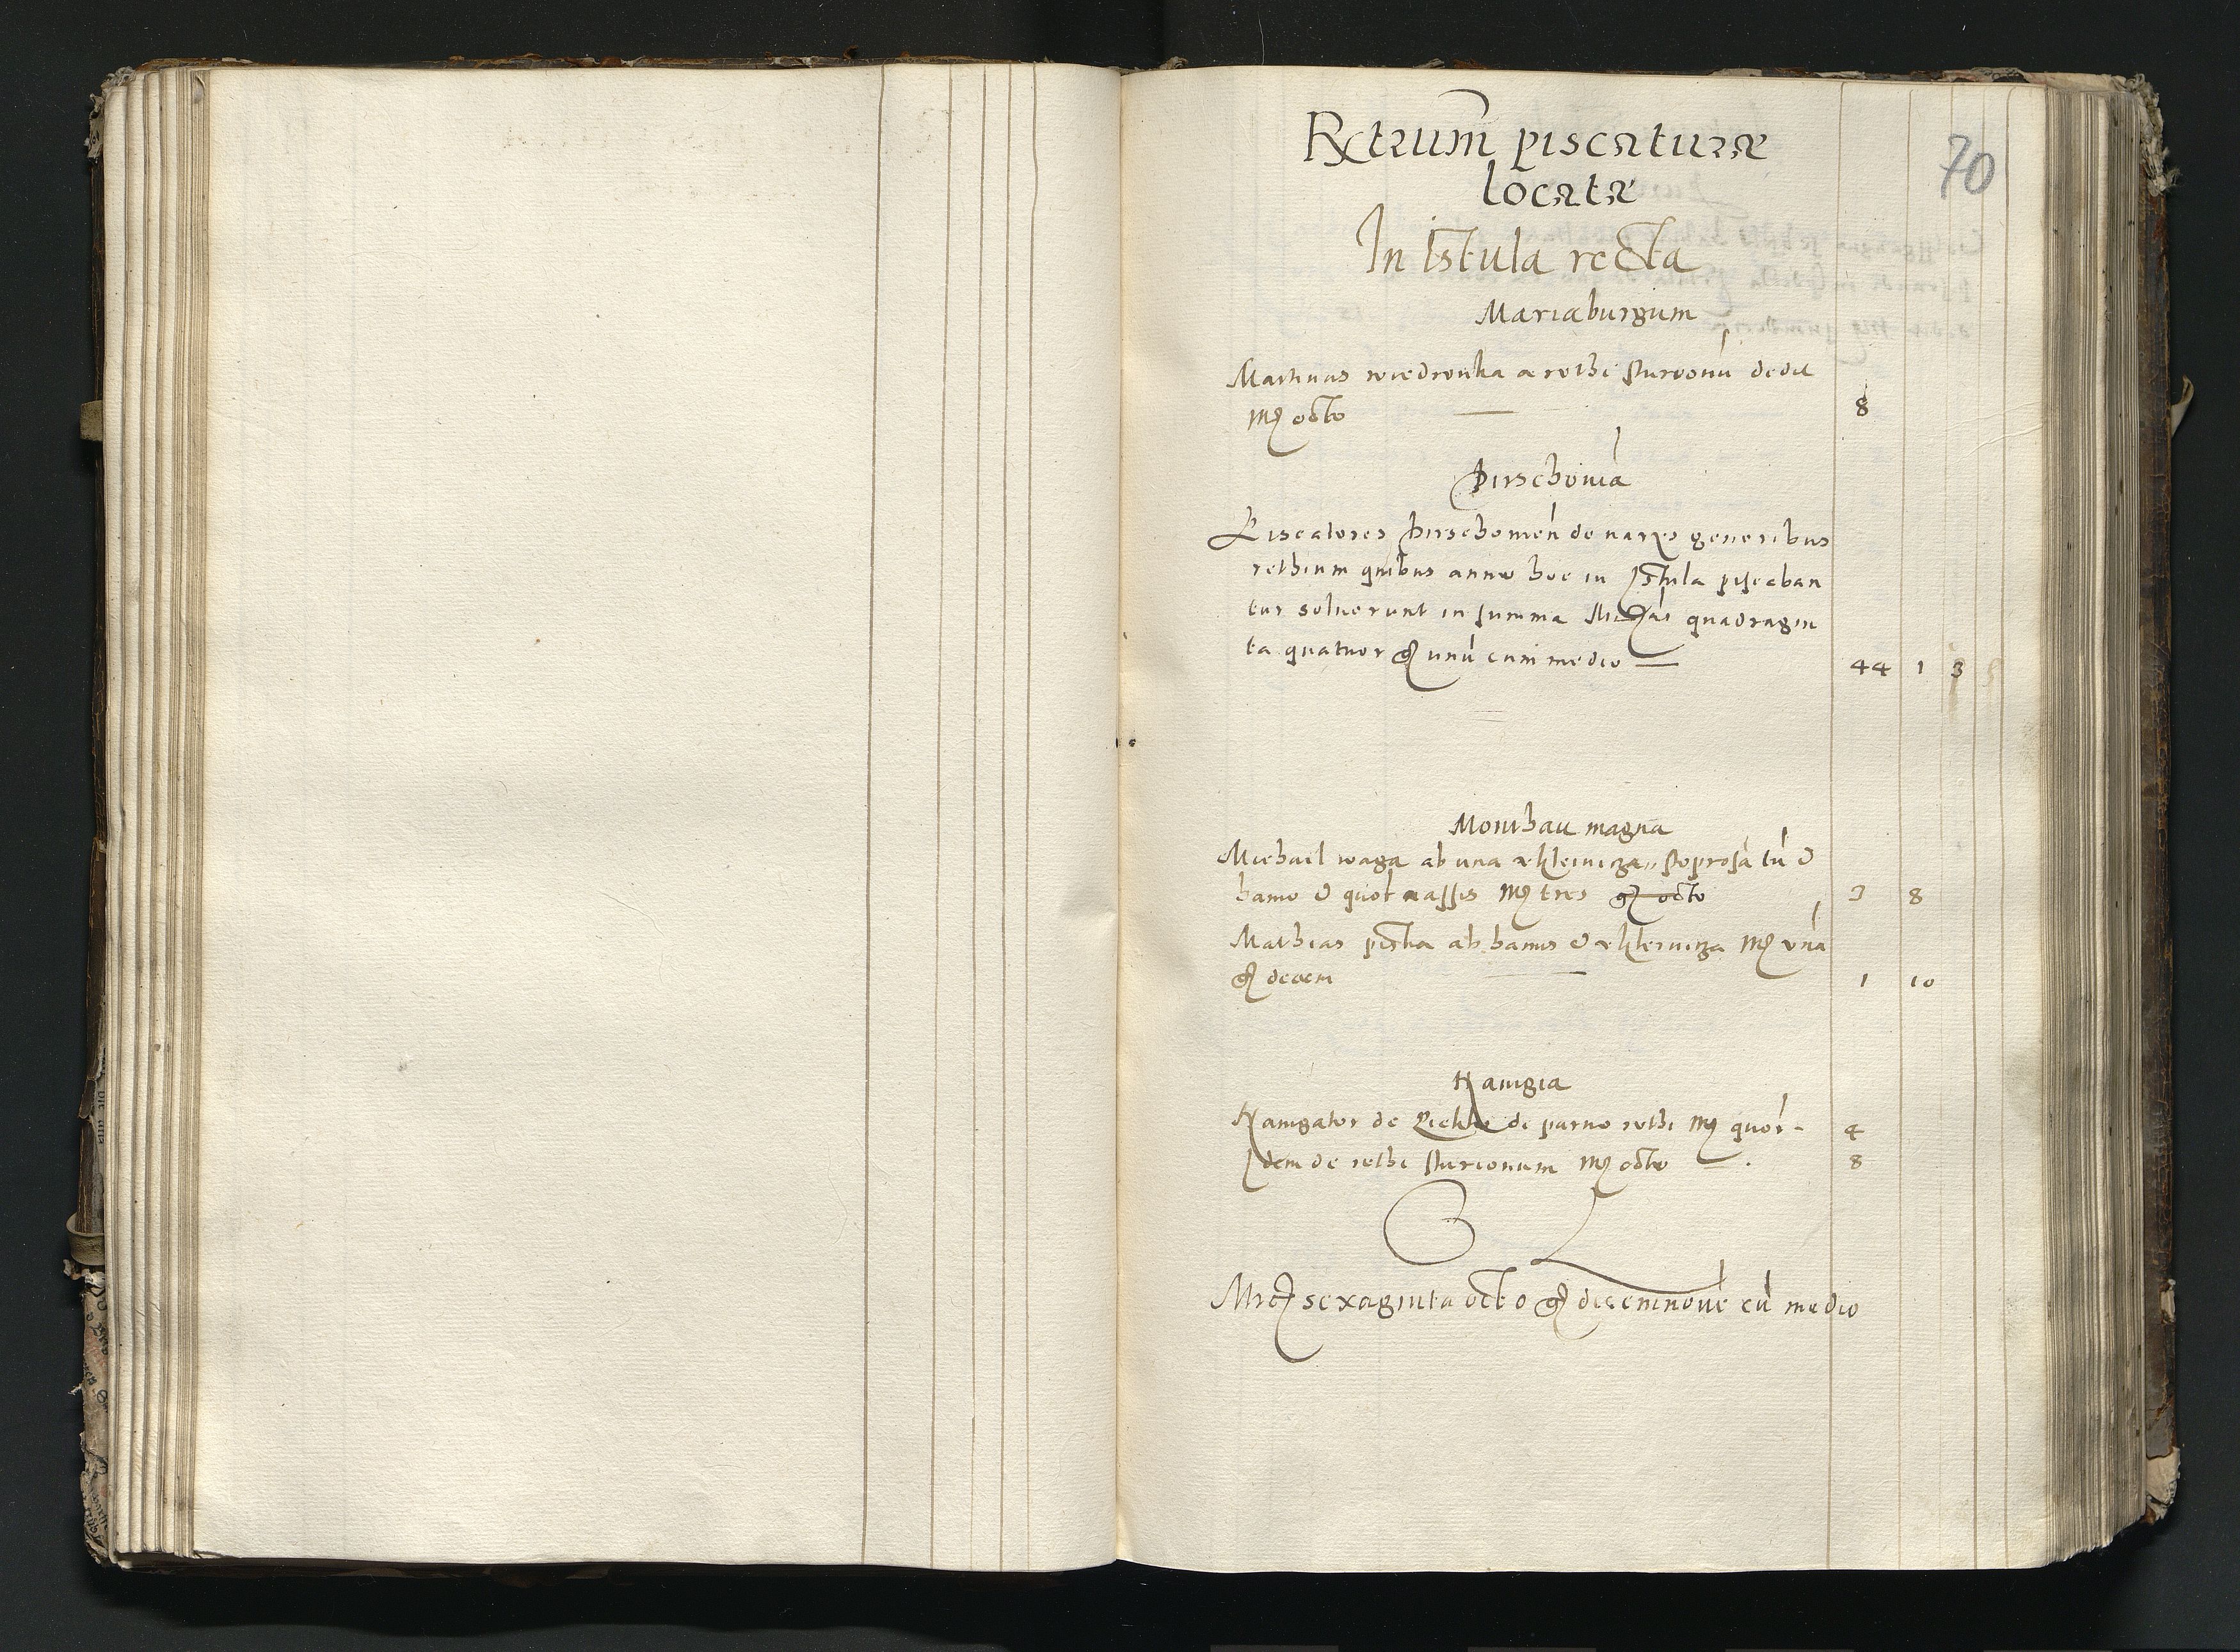 Retium piscaturæ
locatæ
70
In Istula recta
Mariæburgum
Martinus wiedronka a rethi sturionū dedit
mr̃ octo — 8
Dirschovia
Piscatores Dirschovien̄ de varijs generibus
rethium quibus anno hoc in Istula piscaban
tur soluerunt in summa Mrcas quadragin
ta quatuor gr̃ unū cum medio — 44 1 3
Monthau magna
Michael waga ab una et duobus tū &
hamo & quot nassis mr̃ tres gr̃ octo 3 8
Mathias piska ab hamis & mr̃ unā
gr̃ decem — 1 10
Nauigia
Nauigator de Pieklo de paruo rethi mr̃ quor̄ - 4
Idem de rethi sturionum mr̃ octo — . 8
Mrc̃ sexaginta octo gr̃ decemnouē cū medio